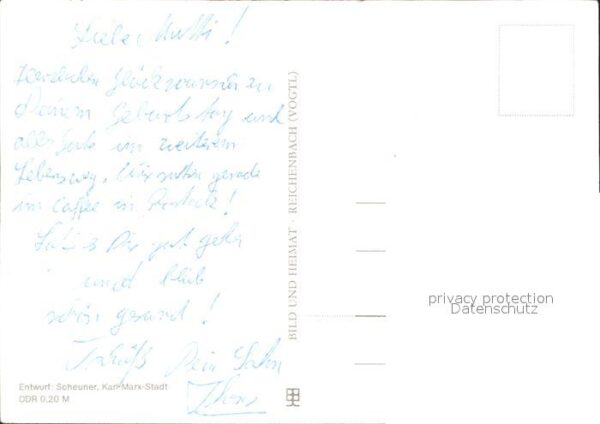 Liebe Mutti!
Herzlichen Glückwunsch zu
Deinem Geburtstag und
alles Gute im weiterem
Lebensweg. Wir sitzen gerade
im Caffee in Rostock!
Laß's Dir gut gehn
und bleib
schön gesund!
Tschüß Dein Sohn
BILD UND HEIMAT · REICHENBACH (VOGTL)
privacy protection
Datenschutz
Entwurf: Scheuner, Karl-Marx-Stadt
DDR 0,20 M